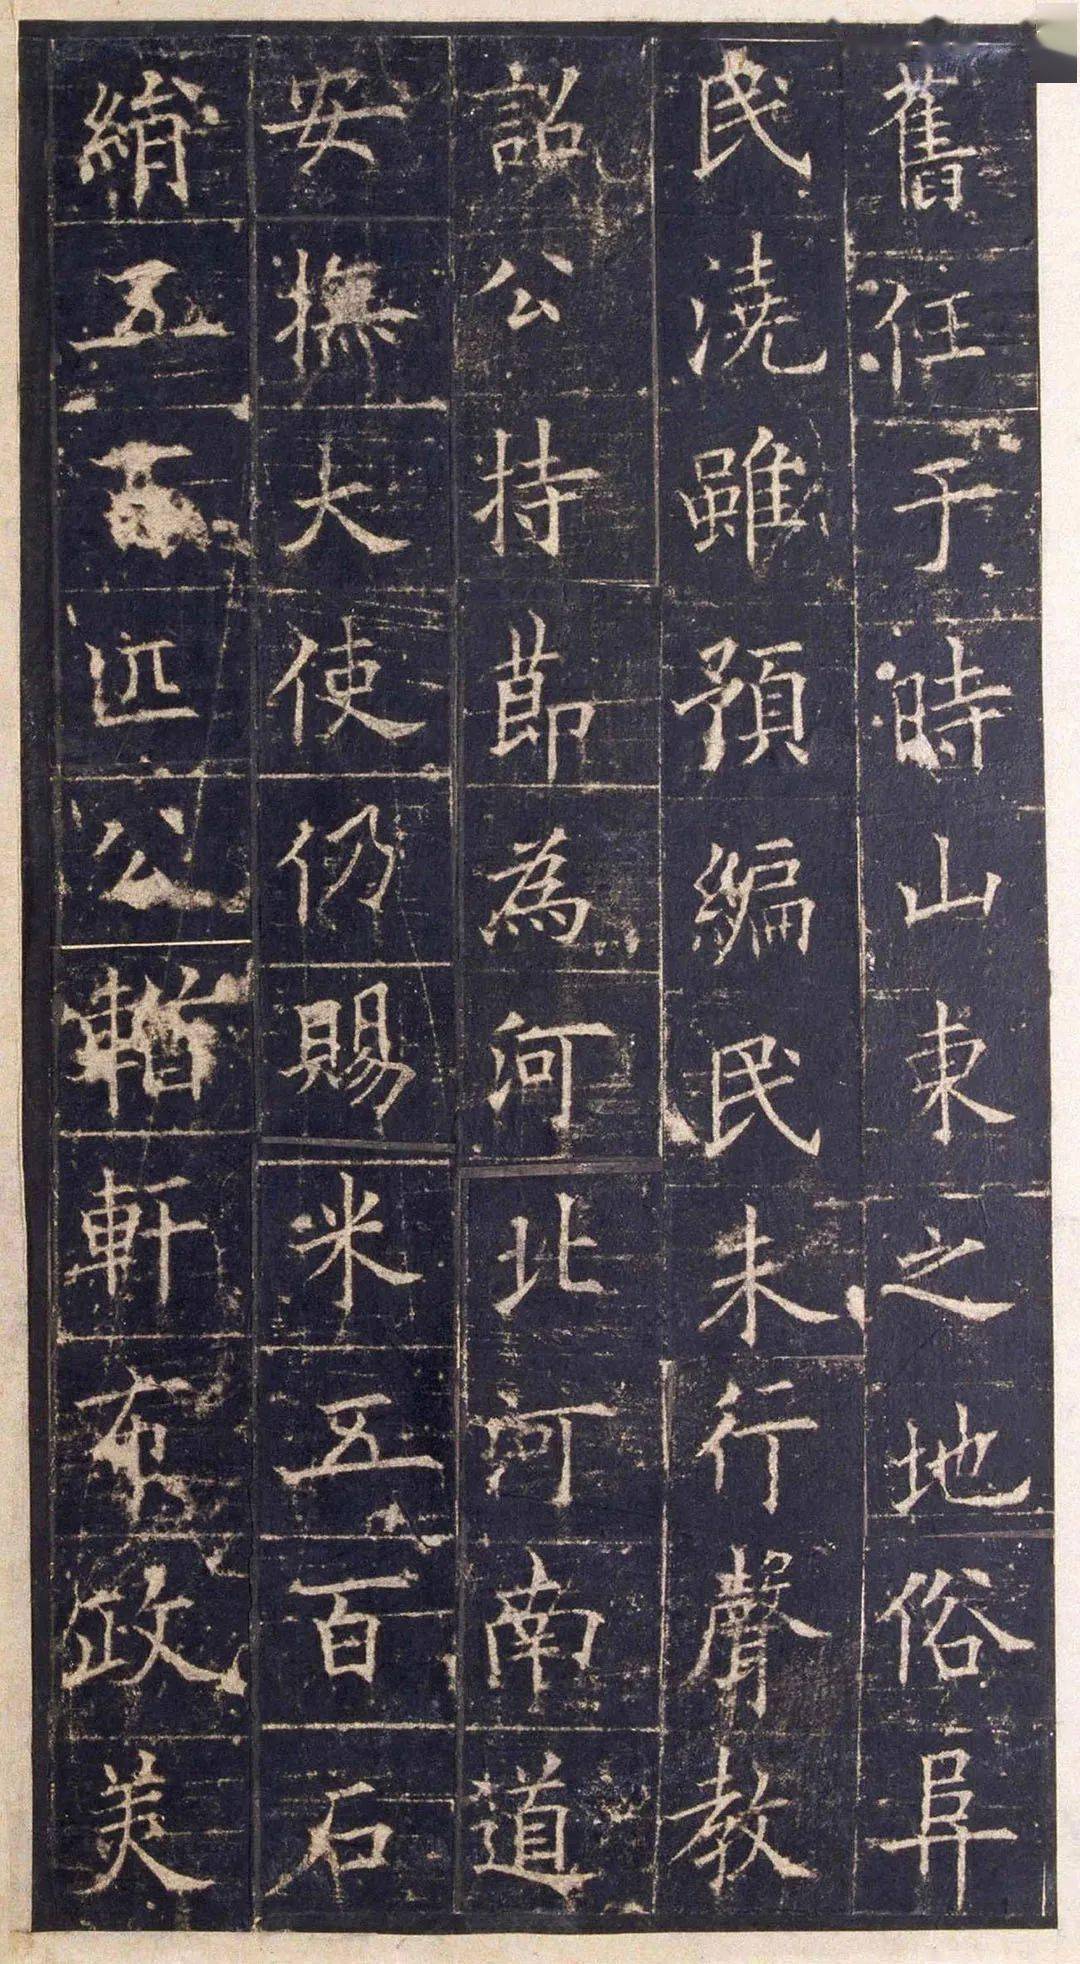 舊任于時山東之地俗阜
民澆雖預編民未行聲教
詔公持節為河北河南道
安撫大使仍賜米五百石
絹五百匹公蹔軒布政美